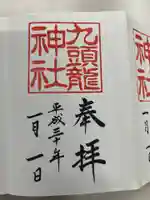 九頭龍
神社
奉拝
平成三十年
一月一日